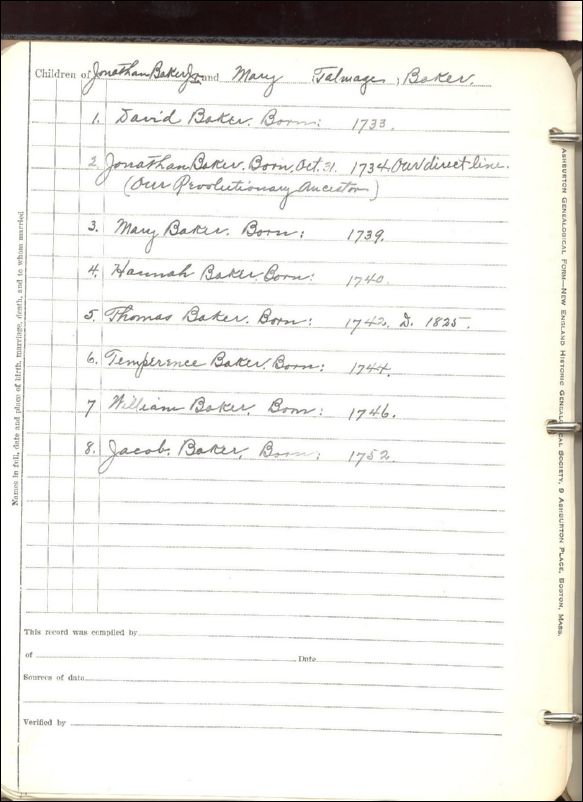 Children of Jonathan Baker Jr. and Mary Talmage, Baker.
1. David Baker. Born: 1733.
2 Jonathan Baker, Born, Oct. 31 1734. Our direct line.
(Our Revolutionary Ancestor)
3. Mary Baker. Born: 1739.
4. Hannah Baker Born: 1740.
5. Thomas Baker. Born: 1742. D. 1825.
6. Temperence Baker. Born: 1744.
7 William Baker. Born: 1746.
8. Jacob. Baker. Born: 1752.
This record was compiled by
of Date
Sources of data
Verified by
Names in full, date and place of birth, marriage, death, and to whom married
ASHBURTON GENEALOGICAL FORM—NEW ENGLAND HISTORIC GENEALOGICAL SOCIETY, 9 ASHBURTON PLACE, BOSTON, MASS.